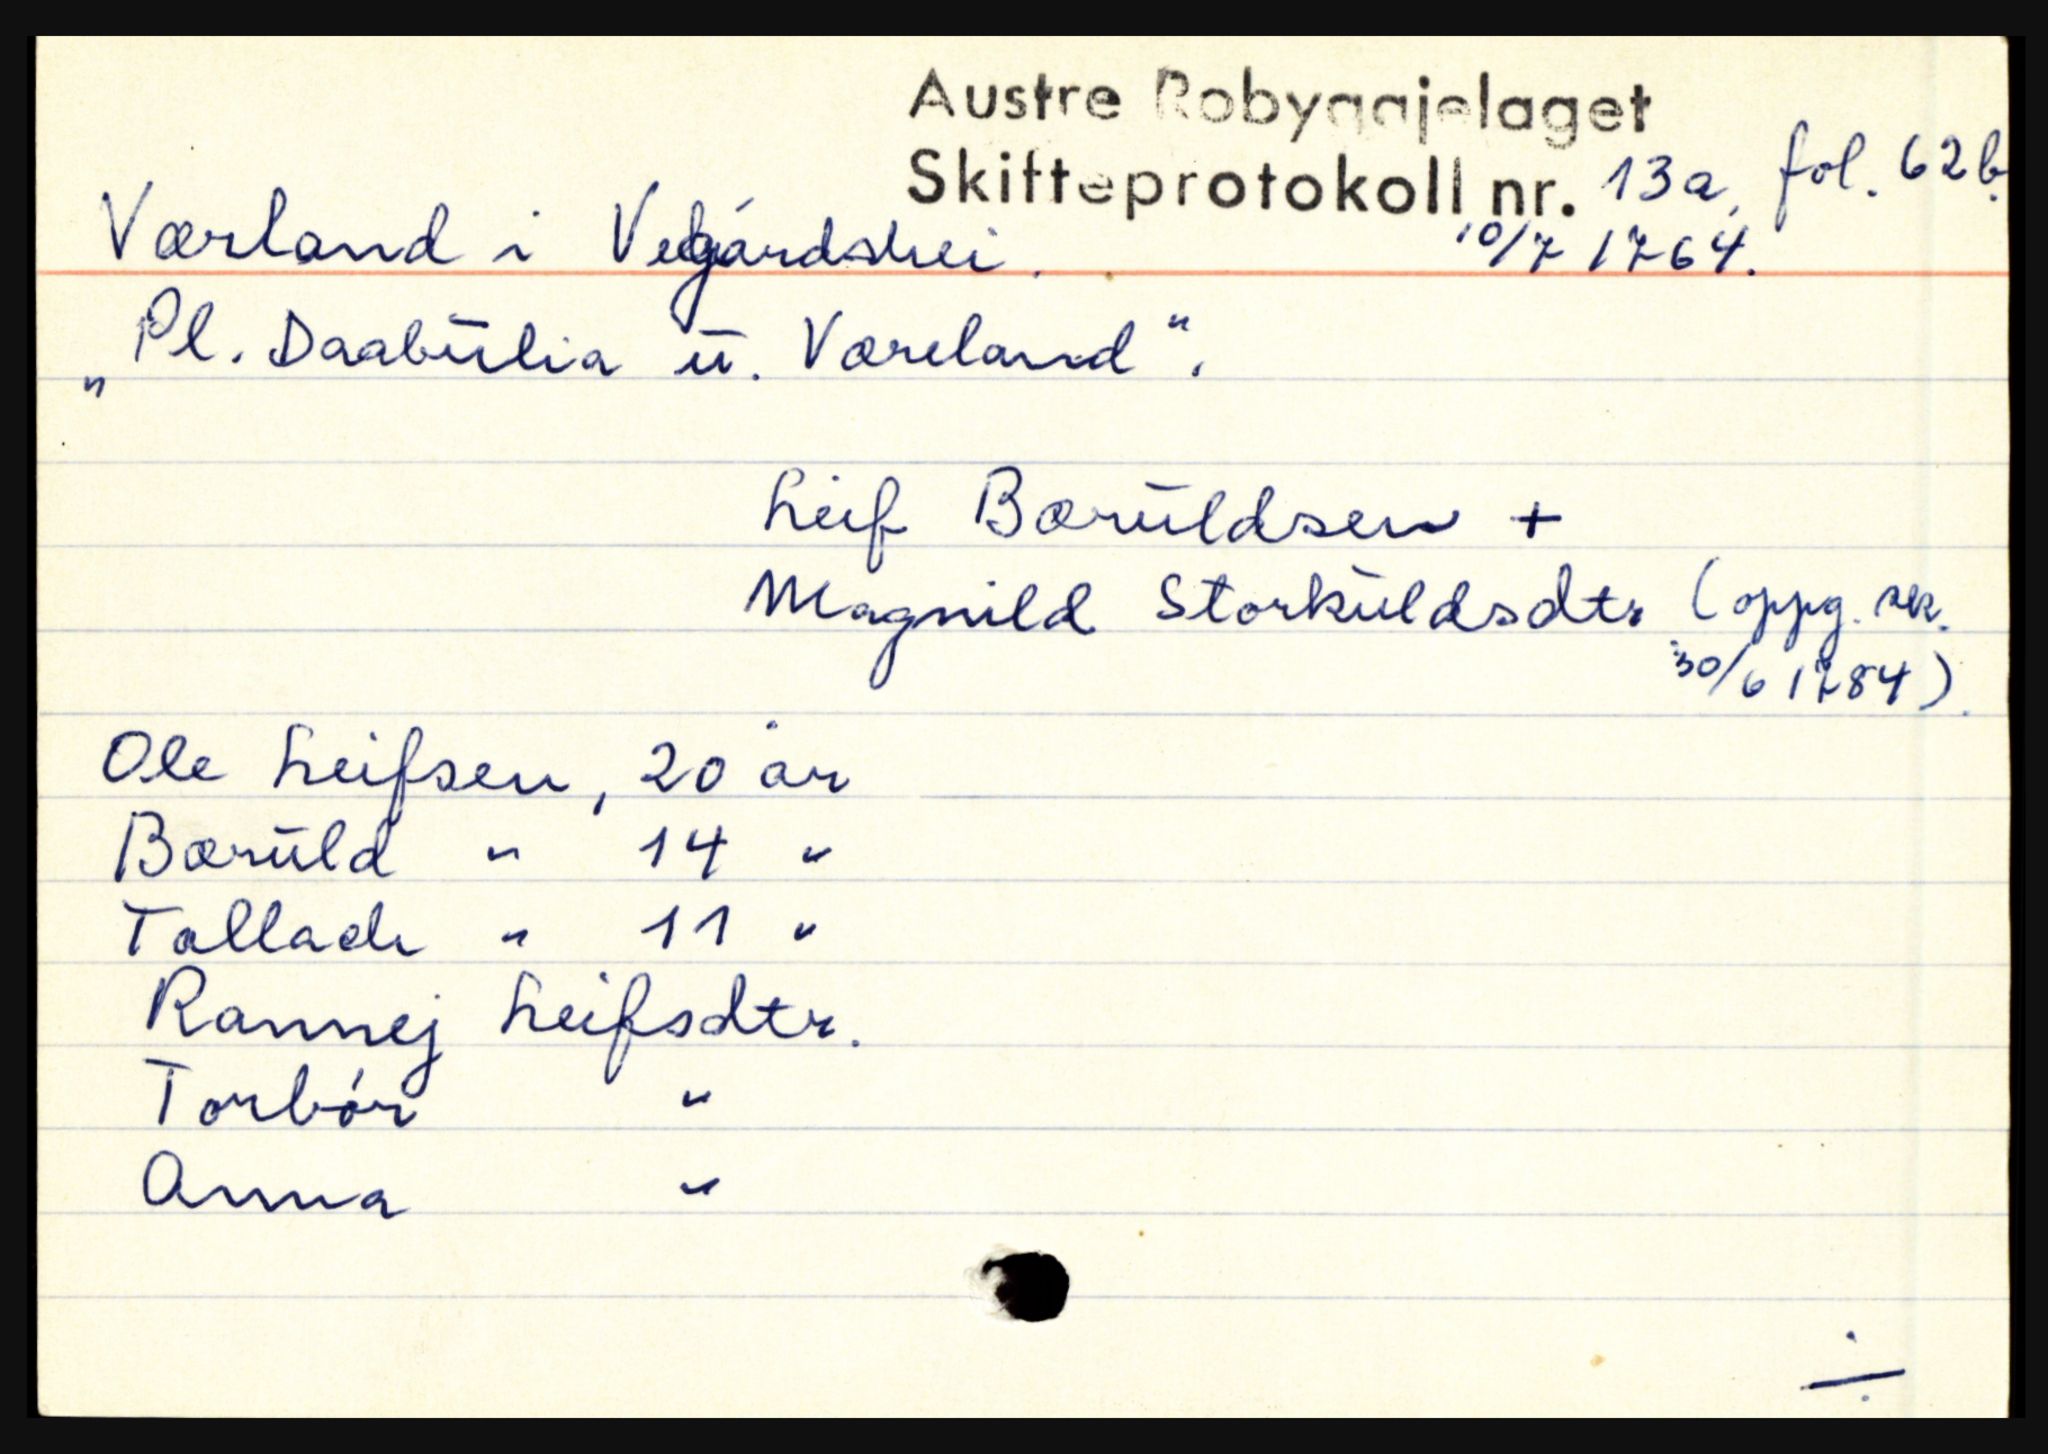 Austre Robyggjelaget
Skifteprotokoll nr. 13a, fol. 62b.
Værland i Vegårdshei. 10/7 1764.
„Pl. Daabūlia ū. Væreland".
Leif Bærūldsen +
Magnild Storkūldsdtr (oppg. sk.
30/6 1784).
Ole Leifsen, 20 år
Bærūld " 14 "
Tallach " 11 "
Rannej Leifsdtr.
Torbór "
Anna "
÷